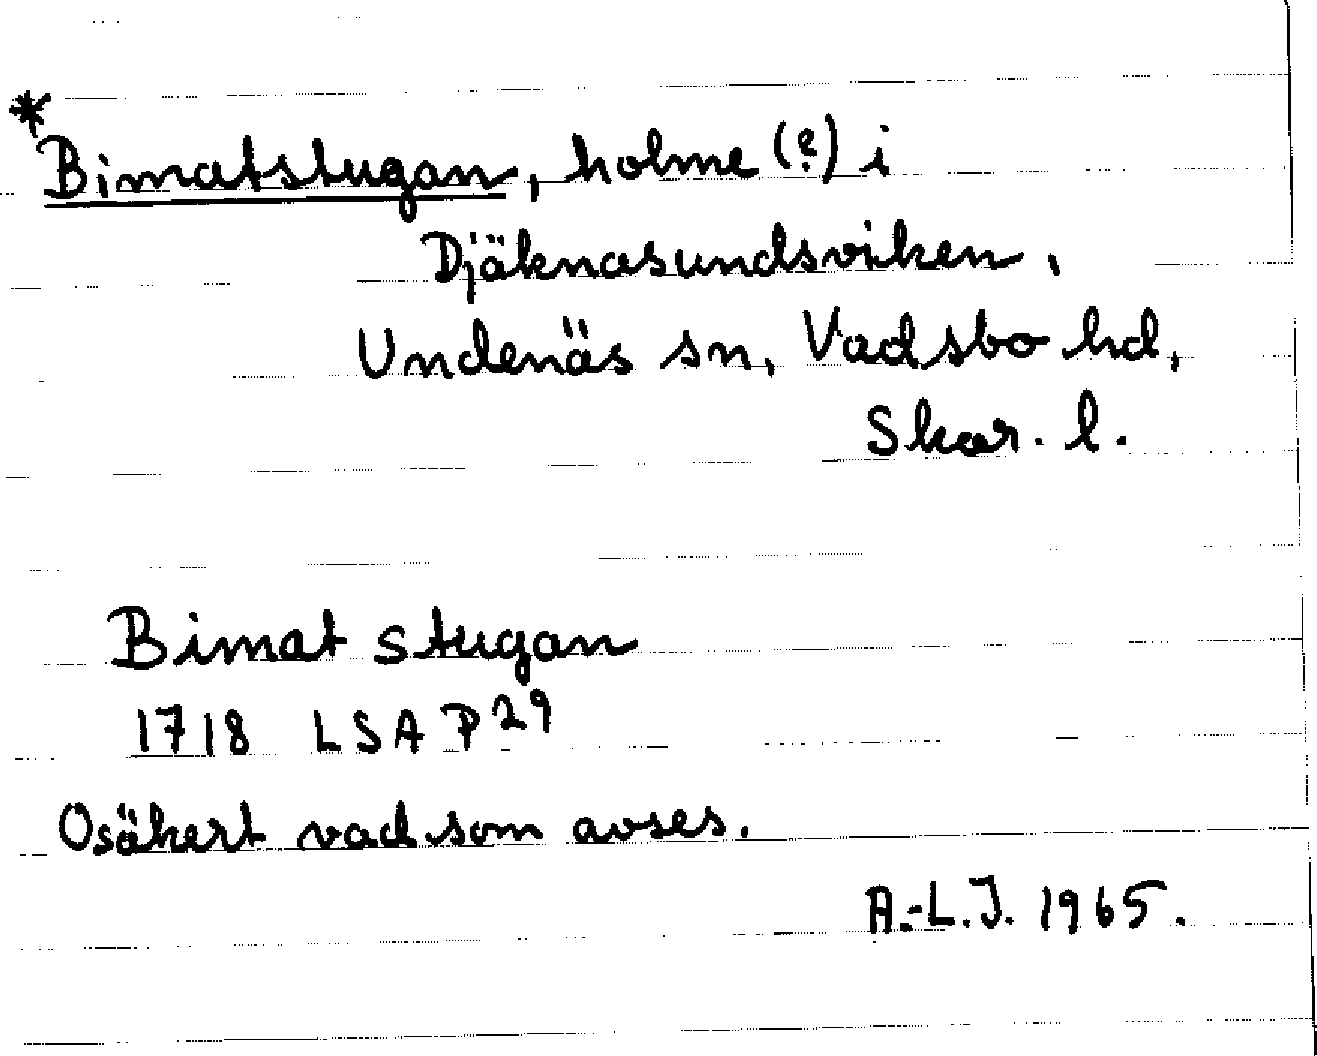 *
Bimatstugan, holme (?) i
Djäknasundsviken,
Undenäs sn, Vadsbo hd,
Skar. l.
Bimat stugan
1718 LSA P29
Osäkert vad som avses.
A.-L.J. 1965.